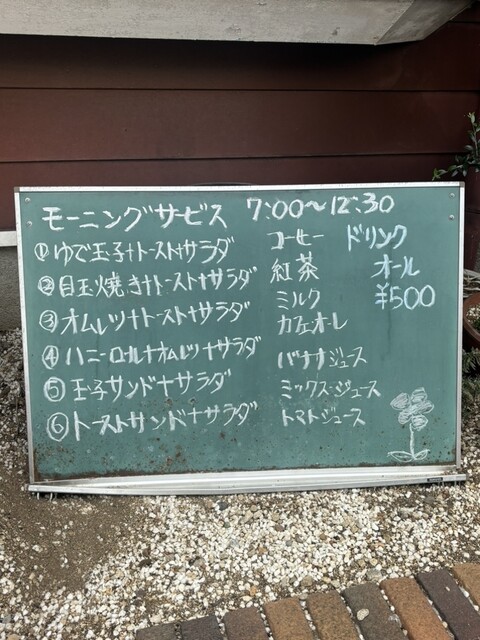 モーニングサービス 7:00〜12:30
①ゆで玉子+トースト+サラダ
②目玉焼き+トースト+サラダ
③オムレツ+トースト+サラダ
④ハニーロール+オムレツ+サラダ
⑤玉子サンド+サラダ
⑥トーストサンド+サラダ
コーヒー
紅茶
ミルク
カフェオーレ
バナナジュース
ミックス・ジュース
トマトジュース
ドリンク
オール
¥500